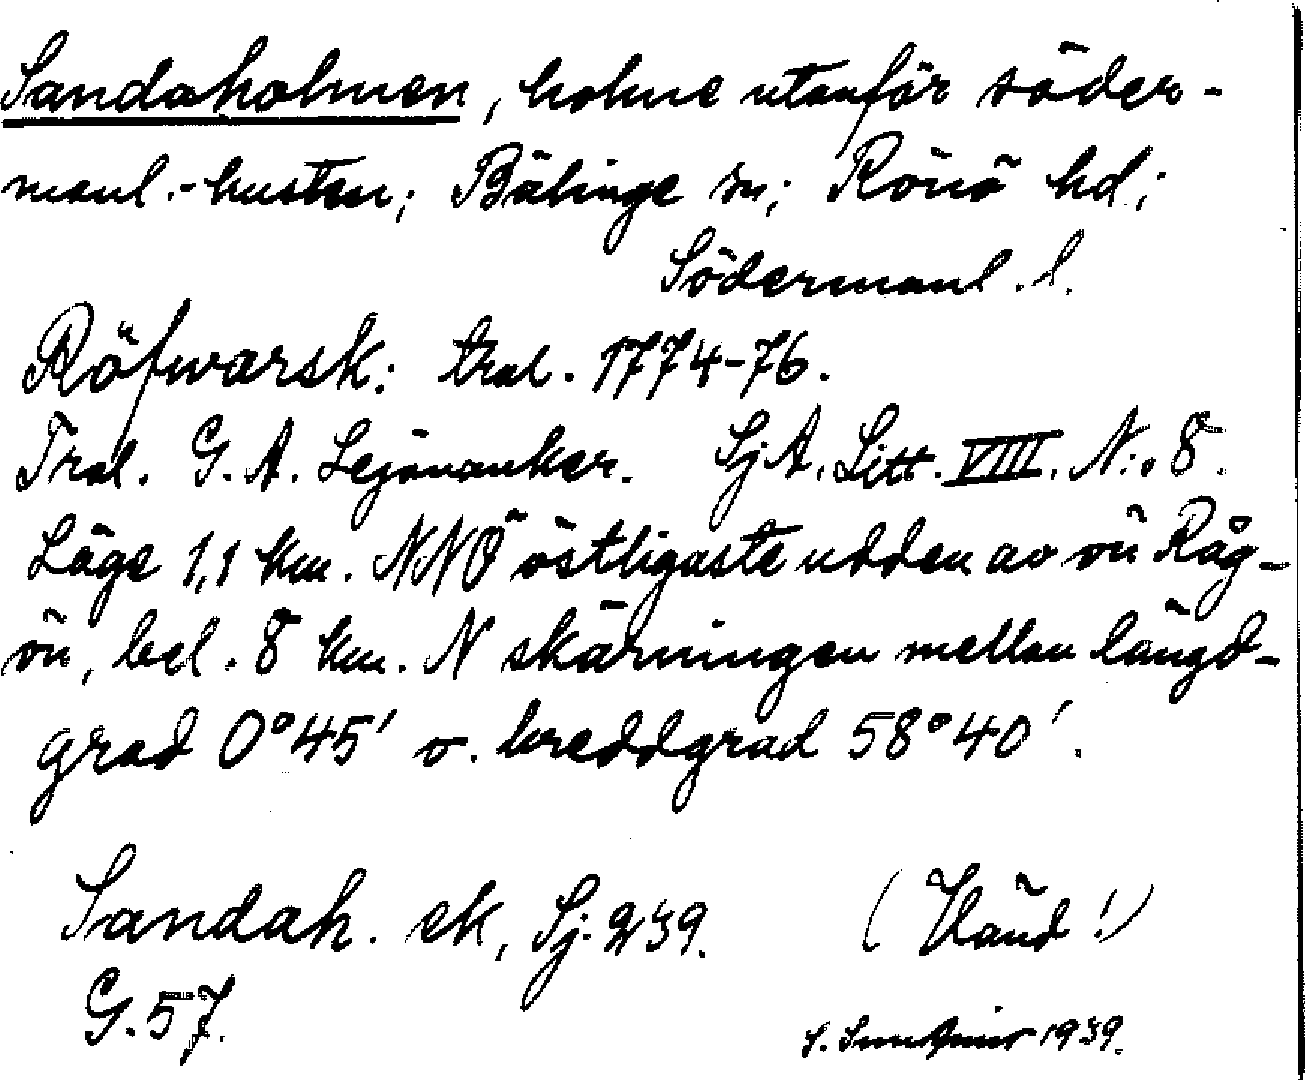 Sandaholmen, holme utanför söder-
manl.-kusten; Bälinge sn; Rönö hd;
Södermanl. l.
Röfwarsk: tral. 1774-76.
Tral. G. A. Lejonanker. SjA. Litt. VIII. N:o 8.
Läge 1,1 km. NNÖ östligaste udden av ön Råg-
ön, bel. 8 km. N skärningen mellan längd-
grad 0°45' o. breddgrad 58°40'.
Sandah. ek, Sj. 239. (Vänd!)
G. 57.
S. 1939.